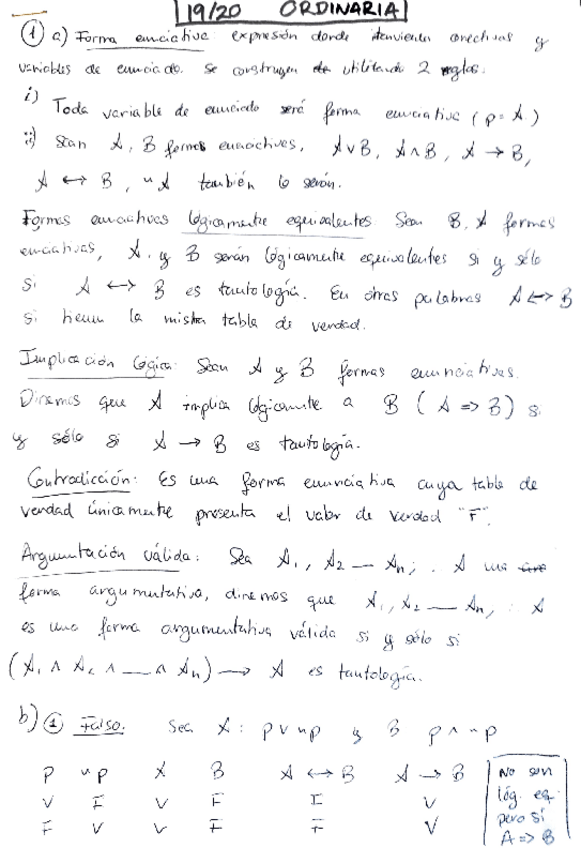 19/20 ORDINARIA
① a) Forma enunciativa: expresión donde intervienen conectivas y
variables de enunciado. Se construyen utilizando 2 reglas:
i) Toda variable de enunciado será forma enunciativa (p = A.)
ii) Sean A, B formas enunciativas, A ∨ B, A ∧ B, A → B,
A ↔ B, ~A también lo serán.
Formas enunciativas lógicamente equivalentes. Sean B, A formas
enunciativas, A. y B serán lógicamente equivalentes si y sólo
si A ↔ B es tautología. En otras palabras A ↔ B
si tienen la misma tabla de verdad.
Implicación lógica: Sean A y B formas enunciativas.
Diremos que A implica lógicamente a B (A => B) si
y sólo si A → B es tautología.
Contradicción: Es una forma enunciativa cuya tabla de
verdad únicamente presenta el valor de verdad "F".
Argumentación válida: Sea A₁, A₂ — Aₙ; ∴ A una
forma argumentativa, diremos que A₁, A₂ — Aₙ, ∴ A
es una forma argumentativa válida si y sólo si
(A₁ ∧ A₂ ∧ — ∧ Aₙ) → A es tautología.
b) ① Falso. Sea A: p ∨ ~p y B p ∧ ~p
p ~p A B A ↔ B A → B
V F V F F V
F V V F F V
No son
lóg. eq.
pero sí
A => B